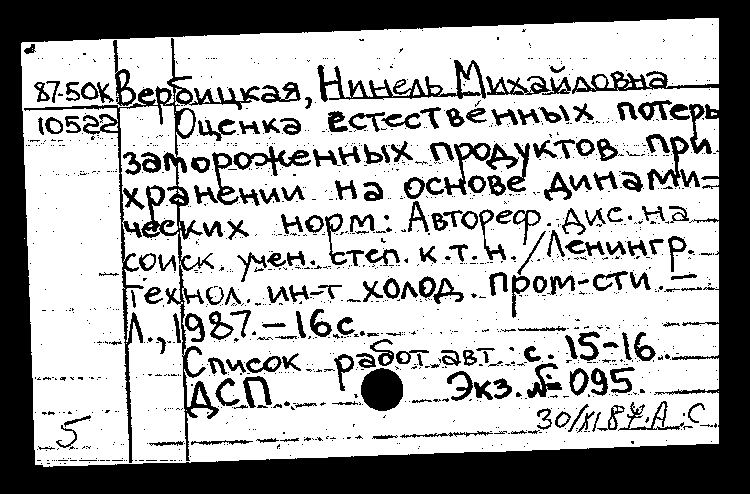 87-50К Вербицкая, Нинель Михайловна
10522 Оценка естественных потерь
замороженных продуктов при
хранении на основе динами=
ческих норм: Автореф. дис. на
соиск. учен. степ. к.т.н. / Ленингр.
технол. ин-т холод. пром-сти. —
Л., 1987. - 16 с.
Список работ авт.: с. 15-16.
ДСП. Экз. № 095.
5